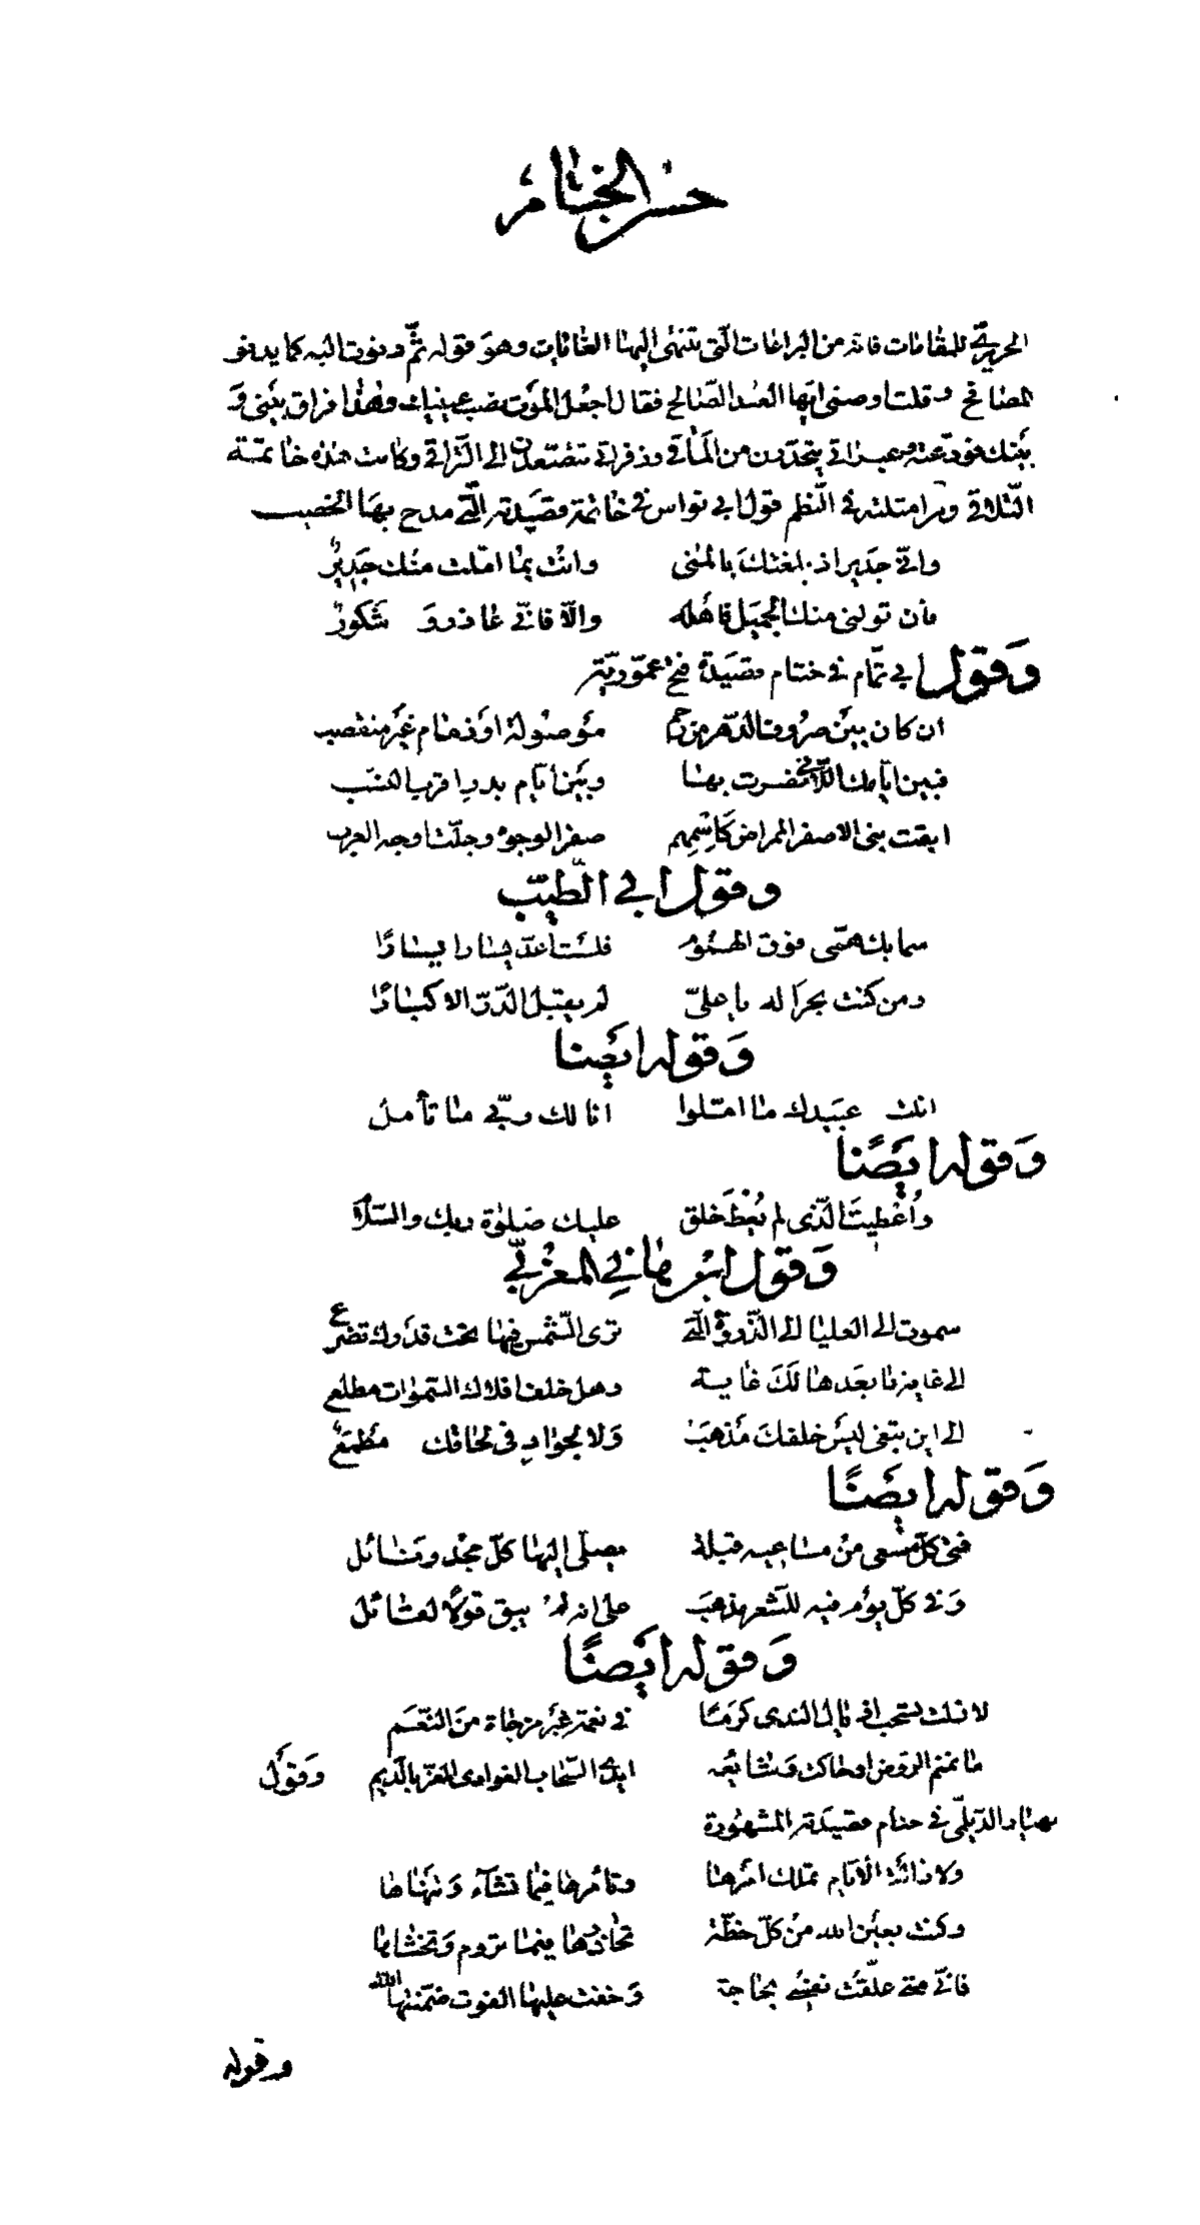 حسن الختام
الحريريّ للمقامات فانه من البراعات الّتى تنتهى اليها الغايات وهو قوله ثمّ دنوت اليه كما يدنو
المصافح و قلت اوصنى ايّها العبد الصّالح فقال اجعل الموت نصب عينيك وهذا فراق بينى و
بينك فودّعته وعبراتى يتحدّرن من المآقى وزفراتى يتصعّدن الى التّراقى وكانت هذه خاتمة
التّلاقى ومن امثلته فى النّظم قول ابى نواس فى خاتمة قصيدته الّتى مدح بها الخصيب
وانّى جدير اذ بلغتك بالمنى وانت بما امّلت منك جديرٌ
فان تولنى منك الجميل فاهله والّا فانّى عاذر و شكورٌ
وقول ابى تمّام فى ختام قصيدة فتح عمّوريّة
ان كان بين صروف الدّهر من رحم موصولة او ذمام غير منقضب
فبين ايّامك اللّاتى نصرت بها وبين ايّام بدر اقرب النّسب
ابقت بنى الاصفر الممراض كاسمهم صفر الوجوه وجلّت اوجه العرب
وقول ابى الطّيّب
سما بك همّى فوق الهموم فلست اعدّ يسارا يسارًا
ومن كنت بحرا له يا علىّ لم يقبل الدّرّ الا كبارًا
وقوله ايضا
انلت عبيدك ما امّلوا انا لك ربّى ما تأمل
وقوله ايضًا
وأُعطيت الّذى لم يُعطَ خلق عليك صلوة ربك والسّلام
وقول ابن هانى المغربىّ
سموت الى العليا الى الذّروة الّتى ترى الشّمس فيها تحت قدرك تضرع
الى غاية ما بعدها لكَ غاية وهل خلف افلاك السّموات مطلع
الى اين تبغى ليس خلفكَ مذهبٌ ولا لجواد فى لحاقك مطمعٌ
وقوله ايضًا
فى كلّ مسعى من مساعيه قبلة يصلّى اليها كلّ مجد ونائل
وفى كلّ يوم فيه للشّعر مذهب على انه لم يبق قولًا لقائل
وقوله ايضًا
لا زلت تسحب اذيال الندى كرمًا فى نعمة غير مزجاة من النّعم
ما نمنم الرّوض او حاكت وشائعه ايدى السّحاب الغوادى الغرّ بالدّيم وقول
مهيار الدّيلمىّ فى ختام قصيدته المشهورة
ولا زالت الايّام تملك امرها وتأمرها فيما تشآء وتنهاها
وكنت بعين الله من كلّ خطّة تحاذرها فيما تروم وتخشاها
فانّى متى علّقت نفسى بحاجة وخفت عليها الفوت ضمّنتها الله
وقوله